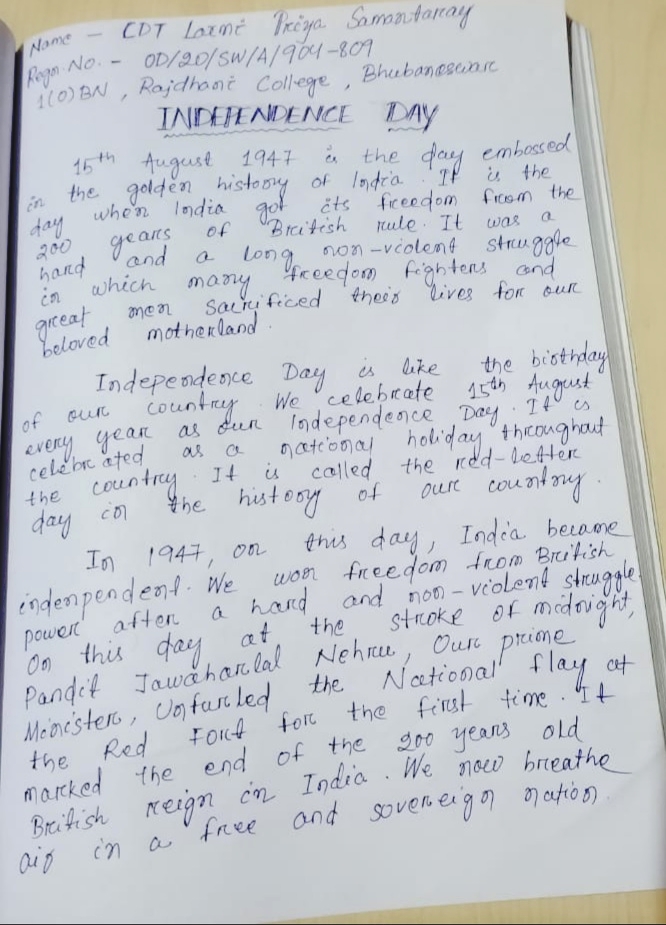 Name - CDT Laxmi Priya Samantaray
Regn. No. - OD/20/SW/A/904-809
1(O)BN, Rajdhani College, Bhubaneswar
INDEPENDENCE DAY
15th August 1947 is the day embossed
in the golden history of India. It is the
day when India got its freedom from the
200 years of British rule. It was a
hard and a long non-violent struggle
in which many freedom fighters and
great men sacrificed their lives for our
beloved motherland.
Independence Day is like the birthday
of our country. We celebrate 15th August
every year as our Independence Day. It is
celebrated as a national holiday throughout
the country. It is called the red-letter
day in the history of our country.
In 1947, on this day, India became
indenpendent. We won freedom from British
power after a hard and non-violent struggle.
On this day at the stroke of midnight,
Pandit Jawaharlal Nehru, Our prime
Minister, Unfurled the National flag at
the Red Fort for the first time. It
marked the end of the 200 years old
British reign in India. We now breathe
air in a free and sovereign nation.